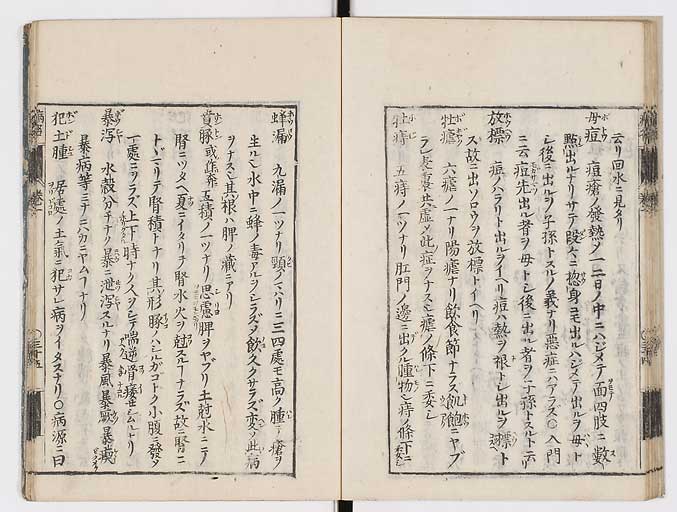 云リ回水ニ見タリ
母痘 痘瘡ノ發熱ノ一二日ノ中ニハジメテ面四肢ニ數
點出ルナリサテ段々ニ惣身ニモ出ルハジメテ出ルヲ母ト
シ後ニ出ルヲ子孫トスルノ義ナリ惡症ニハアラズ〇入門
ニ云痘先出ル者ヲ母トシ後ニ出ル者ヲ子孫トスト云リ
放標 痘ノハラリト出ルヲイヘリ痘ハ熱ヲ根トシ出ルヲ標ト
ス故ニ出ソロウヲ放標トイヘリ
牡瘧 六瘧ノ一ナリ陽瘧ナリ飲食節ナラズ飢飽ニヤブ
ラレ表裏共虚シ此症ヲナスモ瘧ノ條下ニ委シ
牡痔 五痔ノ一ツナリ肛門ノ邊ニ出クル腫物シ痔ノ條下ニ
蜂漏 九漏ノ一ツナリ頸ノマハリニ三四處モ高ク腫レ瘡ヲ
生ル水中ニ蜂ノ毒アルヲシラズ飲久クサラズ変シ此病
ヲナス其根ハ脾ノ藏ニアリ
賁豚 五積ノ一ツナリ思慮脾ヲヤブリ土尅水ニテ
腎ニツタヘ夏ニイタリテ腎水火ヲ尅スルーナラズ故ニ腎ニ
トドマリテ腎積トナリ其形豚ノハシルガゴトク小腹ニ發シ
一處ニアラズ上下時ナク久シテ喘逆骨痿セシムルナリ
暴泻 水穀分チナク暴ニ泄泻スルナリ暴風暴厥暴
暴病等ミナニハカニヤムヿナリ
犯土腫 居處ノ土氣ニ犯サレ病ヲイタスナリ〇病源ニ曰